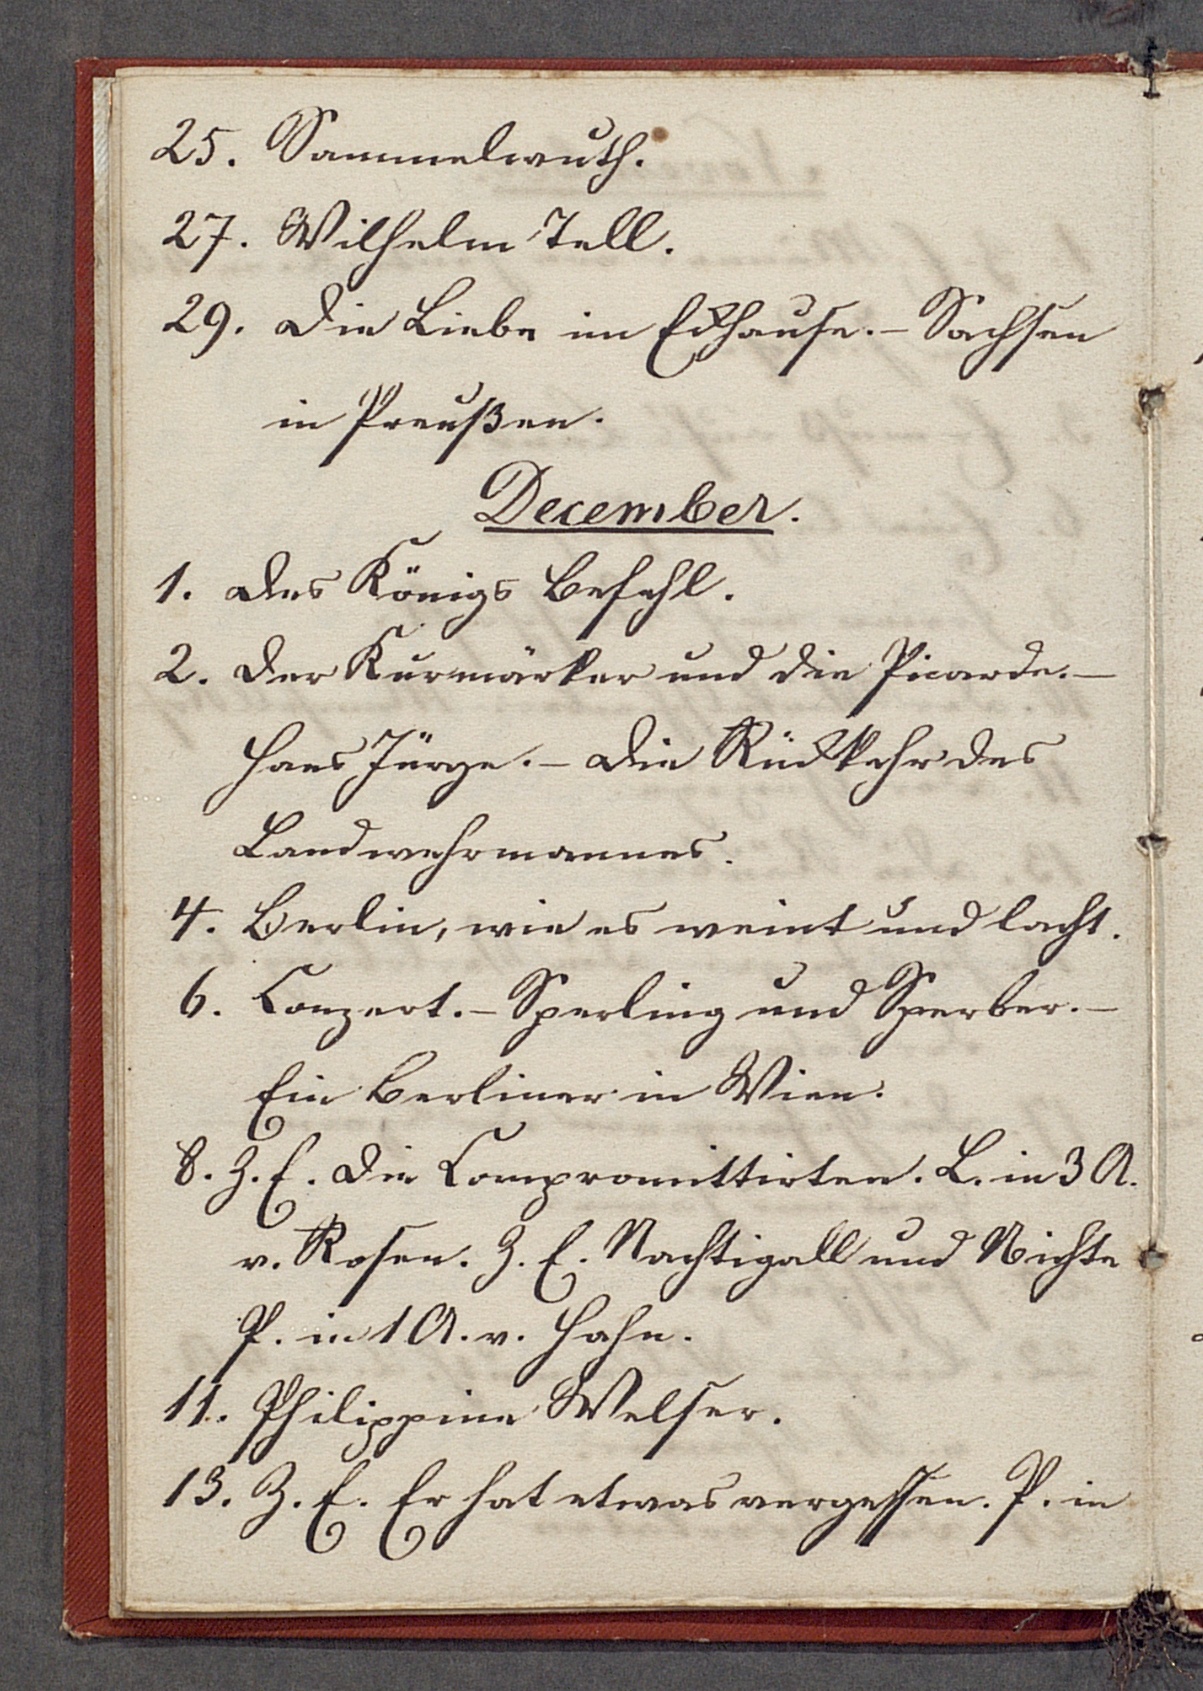 25. Sammelwuth.
27. Wilhelm Tell.
29. Die Liebe im Eckhause. – Sachsen
in Preußen.
December.
1. Des Königs Befehl.
2. Der Kurmärker und die Picarde. –
Hans Jürge. – Die Rückkehr des
Landwehrmannes.
4. Berlin, wie es weint und lacht.
6. Conzert. – Sperling und Sperber. –
Ein Berliner in Wien.
8. Z. E. Die Compromittirten. L. in 3 A.
v. Rosen. Z. E. Nachtigall und Nichte
P. in 1 A. v. Hahn.
11. Philippine Welser.
13. Z. E. Er hat etwas vergessen. P. in